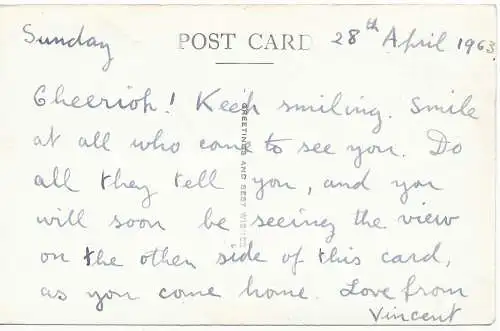 Sunday POST CARD 28th April 1963
Cheerioh! Keep smiling. Smile
at all who come to see you. Do
all they tell you, and you
will soon be seeing the view
on the other side of this card,
as you come home. Love from
Vincent
GREETINGS AND BEST WISHES